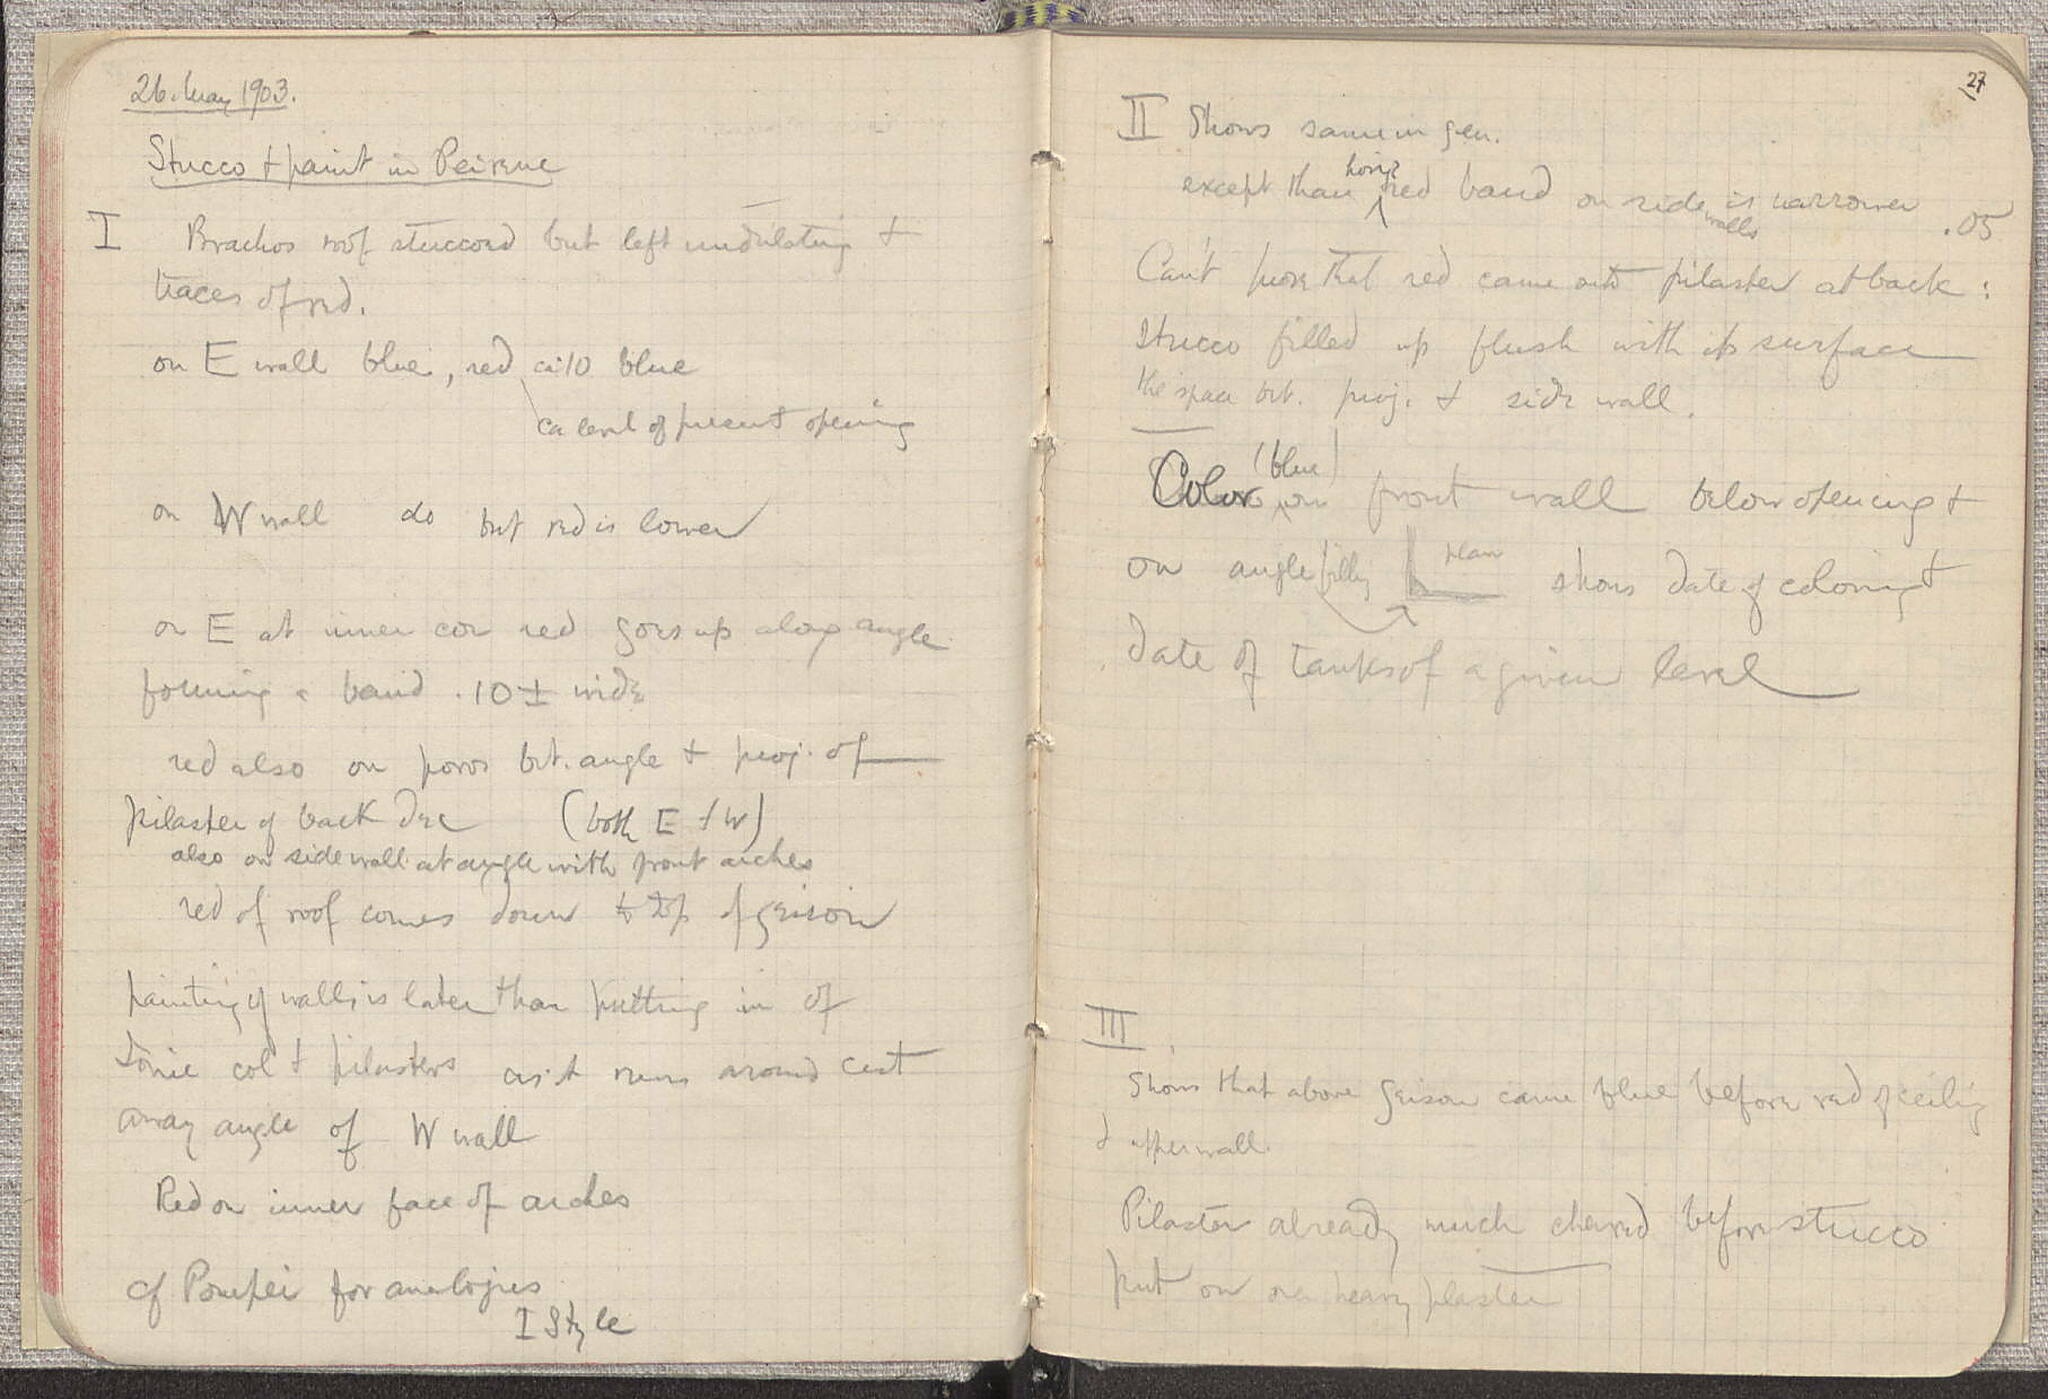 26. May 1903.
Stucco + paint in Peirene
I Brachos roof stuccoed but left undulating +
traces of red.
on E wall blue, red ca .10 blue
ca level of present opening
on W wall do but red is lower
on E at inner cor red goes up along angle
forming a band .10 ± wide
red also on poros bet. angle + proj. of
pilaster of back
(both E + W)
also on side wall at angle with front arches
red of roof comes down to top of geison
painting of walls is later than putting in of
Ionic col + pilasters as it runs around cut
away angle of W wall
Red on inner face of arches
cf Pompei for analogies
I Style
27
II Shows same in gen.
except than horiz red band on side walls is narrower .05
Can't prove that red came onto pilaster at back :
Stucco filled up flush with its surface
the space bet. proj. + side wall.
Color (blue) on front wall below opening +
on angle filling plan shows date of coloring +
date of tanks of a given level
III
Shows that above geison came blue before red of ceiling
+ upper wall.
Pilaster already much chewed before stucco
put on over heavy plaster